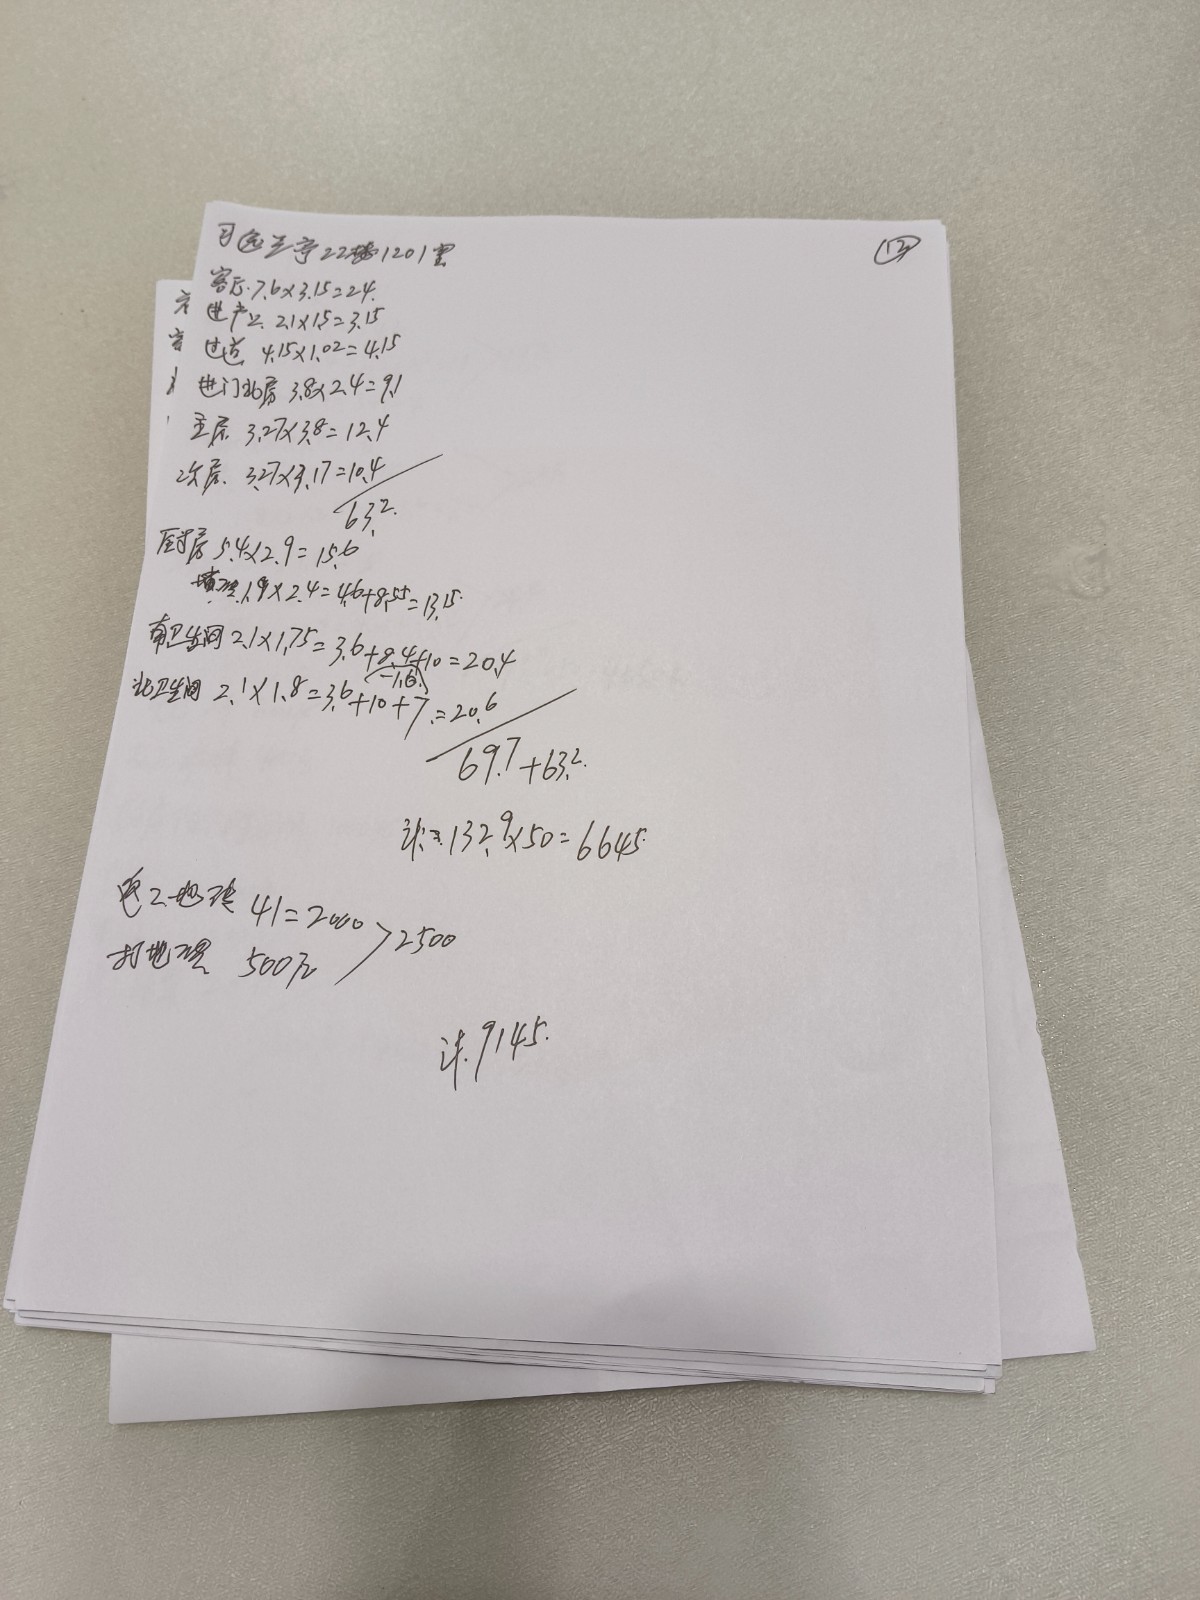 22楼1201室
⑫
客厅.7.6×3.15=24.
进户 2.1×1.5=3.15
过道 4.15×1.02=4.15
进门北房 3.8×2.4=9.1
主房. 3.27×3.8=12.4
次房. 3.27×3.17=10.4
63.2.
厨房 5.4×2.9=15.6
1.9×2.4=4.6+8.55=13.15.
南卫生间 2.1×1.75=3.6+8.4+10=20.4
(-1.6.)
北卫生间 2.1×1.8=3.6+10+7.=20.6
69.7+63.2.
计=132.9×50=6645.
电工地 41=2000
2500
打地 500元
计.9145.